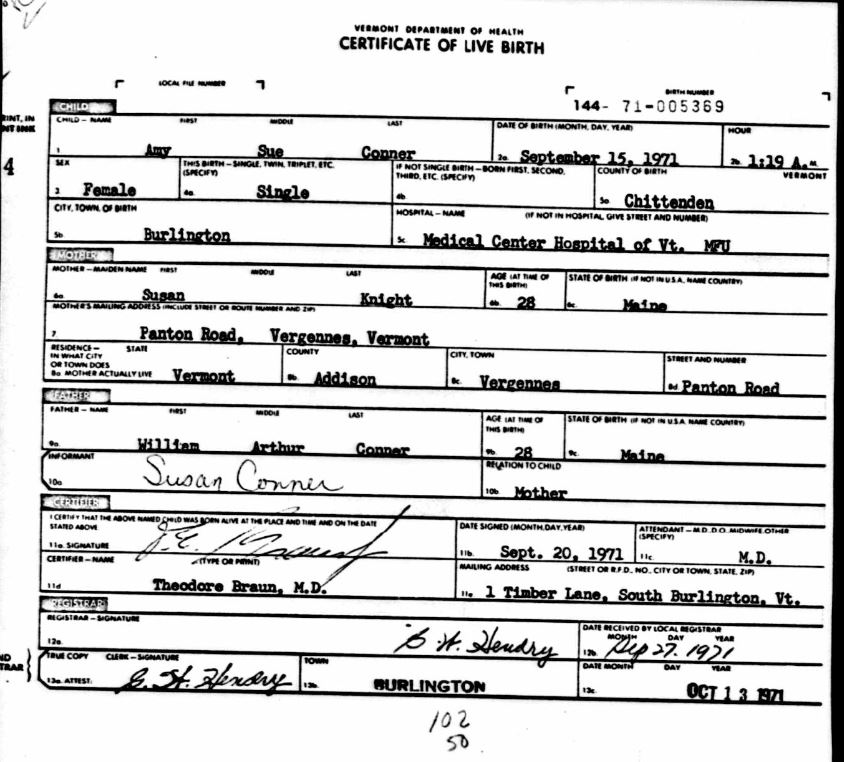 VERMONT DEPARTMENT OF HEALTH
CERTIFICATE OF LIVE BIRTH
LOCAL FILE NUMBER
BIRTH NUMBER
144- 71-005369
CHILD
CHILD – NAME FIRST MIDDLE LAST DATE OF BIRTH (MONTH, DAY, YEAR) HOUR
1 Amy Sue Conner 2a. September 15, 1971 2b. 1:19 A.M.
4
SEX THIS BIRTH – SINGLE, TWIN, TRIPLET, ETC. (SPECIFY) IF NOT SINGLE BIRTH – BORN FIRST, SECOND, THIRD, ETC. (SPECIFY) COUNTY OF BIRTH VERMONT
3 Female 4a. Single 4b 5a Chittenden
CITY, TOWN, OF BIRTH HOSPITAL – NAME (IF NOT IN HOSPITAL, GIVE STREET AND NUMBER)
5b. Burlington 5c Medical Center Hospital of Vt. MFU
MOTHER
MOTHER – MAIDEN NAME FIRST MIDDLE LAST AGE (AT TIME OF THIS BIRTH) STATE OF BIRTH (IF NOT IN U.S.A. NAME COUNTRY)
6a Susan Knight 6b. 28 6c. Maine
MOTHER'S MAILING ADDRESS (INCLUDE STREET OR ROUTE NUMBER AND ZIP)
7 Panton Road, Vergennes, Vermont
RESIDENCE – IN WHAT CITY OR TOWN DOES MOTHER ACTUALLY LIVE STATE COUNTY CITY, TOWN STREET AND NUMBER
8a Vermont 8b Addison 8c. Vergennes 8d Panton Road
FATHER
FATHER – NAME FIRST MIDDLE LAST AGE (AT TIME OF THIS BIRTH) STATE OF BIRTH (IF NOT IN U.S.A. NAME COUNTRY)
9a William Arthur Conner 9b. 28 9c. Maine
INFORMANT RELATION TO CHILD
10a Susan Conner 10b Mother
CERTIFIER
I CERTIFY THAT THE ABOVE NAMED CHILD WAS BORN ALIVE AT THE PLACE AND TIME AND ON THE DATE STATED ABOVE. DATE SIGNED (MONTH, DAY, YEAR) ATTENDANT – M.D., D.O., MIDWIFE, OTHER (SPECIFY)
11a. SIGNATURE 11b. Sept. 20, 1971 11c. M.D.
CERTIFIER – NAME (TYPE OR PRINT) MAILING ADDRESS (STREET OR R.F.D. NO., CITY OR TOWN, STATE, ZIP)
11d Theodore Braun, M.D. 11e 1 Timber Lane, South Burlington, Vt.
REGISTRAR
REGISTRAR – SIGNATURE DATE RECEIVED BY LOCAL REGISTRAR MONTH DAY YEAR
12a. Hendry 12b. Sep 27. 1971
TRUE COPY CLERK – SIGNATURE TOWN DATE MONTH DAY YEAR
13a. ATTEST: Hendry 13b. BURLINGTON 13c. OCT 13 1971
102
50